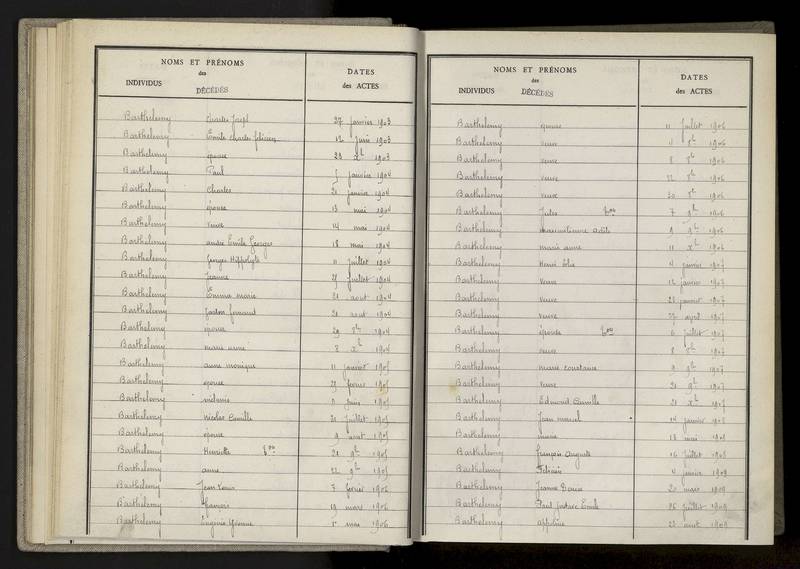 NOMS ET PRÉNOMS
des
INDIVIDUS DÉCÉDÉS
DATES
des ACTES
Barthelemy Charles Joseph 27 janvier 1903
Barthelemy Emile Charles Félicien 12 juin 1903
Barthelemy épouse 23 Xb 1903
Barthelemy Paul janvier 1904
Barthelemy Charles 21 janvier 1904
Barthelemy épouse 13 mai 1904
Barthelemy veuve 14 mai 1904
Barthelemy andré Emile Georges 18 mai 1904
Barthelemy Georges Hippolyte 11 juillet 1904
Barthelemy Jeanne juillet 1904
Barthelemy Emma marie 21 aout 1904
Barthelemy Gaston fernand 21 aout 1904
Barthelemy épouse 29 8b 1904
Barthelemy marie 2 Xb 1904
Barthelemy anne monique 11 janvier 1905
Barthelemy épouse 1905
Barthelemy mélanie juin 1905
Barthelemy nicolas Camille 21 juillet 1905
Barthelemy épouse 9 aout 1905
Barthelemy Henriette 21 9b 1905
Barthelemy anne 22 9b 1905
Barthelemy Jean Louis 7 février 1906
Barthelemy 19 mars 1906
Barthelemy Eugénie Yvonne 1 mai 1906
NOMS ET PRÉNOMS
des
INDIVIDUS DÉCÉDÉS
DATES
des ACTES
Barthelemy épouse 11 juillet 1906
Barthelemy veuve 4 8b 1906
Barthelemy veuve 8 8b 1906
Barthelemy veuve 22 8b 1906
Barthelemy veuve 30 8b 1906
Barthelemy Jules 7 9b 1906
Barthelemy maximilienne 9 9b 1906
Barthelemy marie anne 11 Xb 1906
Barthelemy Henri 4 janvier 1907
Barthelemy veuve 12 janvier 1907
Barthelemy veuve 28 janvier 1907
Barthelemy veuve 27 avril 1907
Barthelemy épouse 6 juillet 1907
Barthelemy veuve 8 8b 1907
Barthelemy marie constance 9 9b 1907
Barthelemy veuve 21 9b 1907
Barthelemy Edmond Camille 21 Xb 1907
Barthelemy Jean marcel 14 janvier 1908
Barthelemy 18 mai 1908
Barthelemy François Auguste 16 juillet 1908
Barthelemy Félicien 4 janvier 1909
Barthelemy Jeanne 20 mars 1909
Barthelemy Paul Gustave Emile 26 juillet 1909
Barthelemy appoline 23 aout 1909